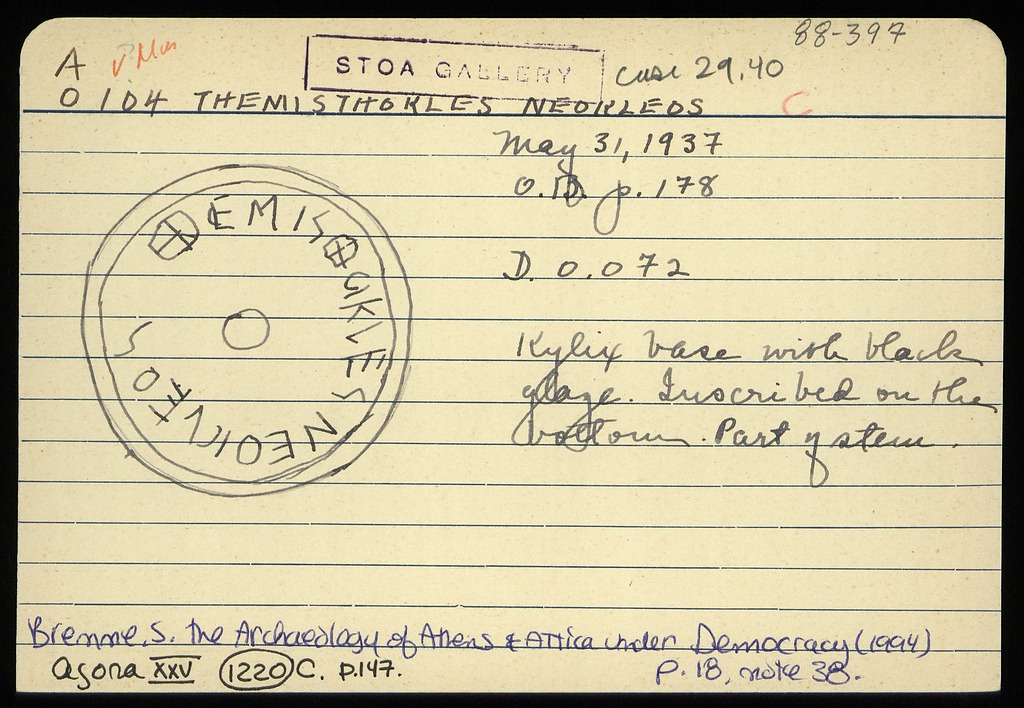 88-397
A v Mus STOA GALLERY case 29,40
O 104 THEMISTHOKLES NEOKLEOS C
May 31, 1937
O.D. p. 178
D. 0.072
ⴲEMISⴲOKLES NEOKLEOS
Kylix base with black
glaze. Inscribed on the
bottom. Part of stem.
Bremme, S. The Archaeology of Athens & Attica under Democracy (1994)
p. 18, note 38.
Agora XXV 1220 C. p.147.